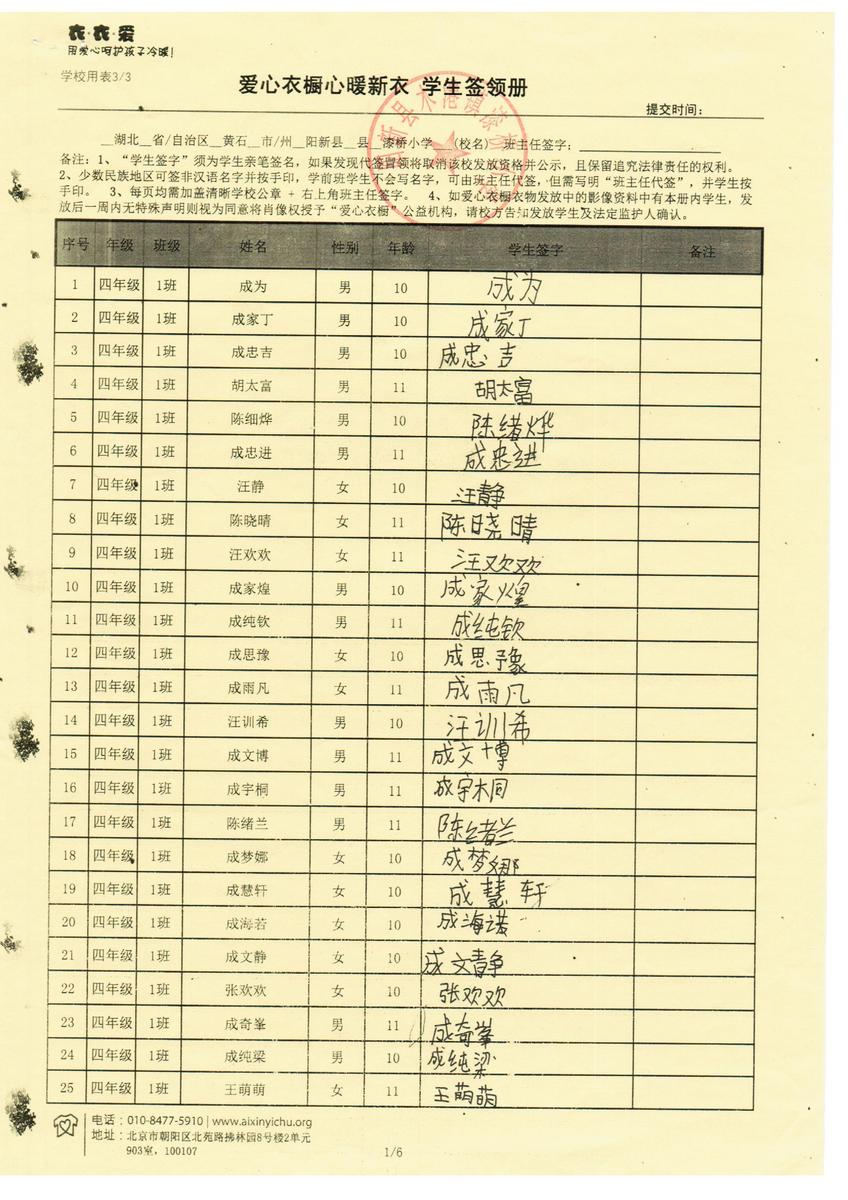 衣·衣·爱
用爱心呵护孩子冷暖!
学校用表3/3
爱心衣橱心暖新衣 学生签领册
提交时间:
__湖北__省/自治区__黄石__市/州__阳新县__县__漆桥小学__(校名) 班主任签字:
备注:1、“学生签字”须为学生亲笔签名,如果发现代签冒领将取消该校发放资格并公示,且保留追究法律责任的权利。
2、少数民族地区可签非汉语名字并按手印,学前班学生不会写名字,可由班主任代签,但需写明“班主任代签”,并学生按
手印。 3、每页均需加盖清晰学校公章 + 右上角班主任签字。 4、如爱心衣橱衣物发放中的影像资料中有本册内学生,发
放后一周内无特殊声明则视为同意将肖像权授予“爱心衣橱”公益机构,请校方告知发放学生及法定监护人确认。
序号 年级 班级 姓名 性别 年龄 学生签字 备注
1 四年级 1班 成为 男 10 成为
2 四年级 1班 成家丁 男 10 成家丁
3 四年级 1班 成忠吉 男 10 成忠吉
4 四年级 1班 胡太富 男 11 胡太富
5 四年级 1班 陈细烨 男 10 陈绪烨
6 四年级 1班 成忠进 男 11 成忠进
7 四年级 1班 汪静 女 10 汪静
8 四年级 1班 陈晓晴 女 11 陈晓晴
9 四年级 1班 汪欢欢 女 11 汪欢欢
10 四年级 1班 成家煌 男 10 成家煌
11 四年级 1班 成纯钦 男 11 成纯钦
12 四年级 1班 成思豫 女 10 成思豫
13 四年级 1班 成雨凡 女 11 成雨凡
14 四年级 1班 汪训希 男 10 汪训希
15 四年级 1班 成文博 男 11 成文博
16 四年级 1班 成宇桐 男 11 成宇桐
17 四年级 1班 陈绪兰 男 11 陈绪兰
18 四年级 1班 成梦娜 女 10 成梦娜
19 四年级 1班 成慧轩 女 10 成慧轩
20 四年级 1班 成海若 女 10 成海诺
21 四年级 1班 成文静 女 10 成文静
22 四年级 1班 张欢欢 女 10 张欢欢
23 四年级 1班 成奇峯 男 11 成奇峯
24 四年级 1班 成纯梁 男 10 成纯梁
25 四年级 1班 王萌萌 女 11 王萌萌
电话:010-8477-5910 | www.aixinyichu.org
地址:北京市朝阳区北苑路拂林园8号楼2单元
903室,100107
1/6